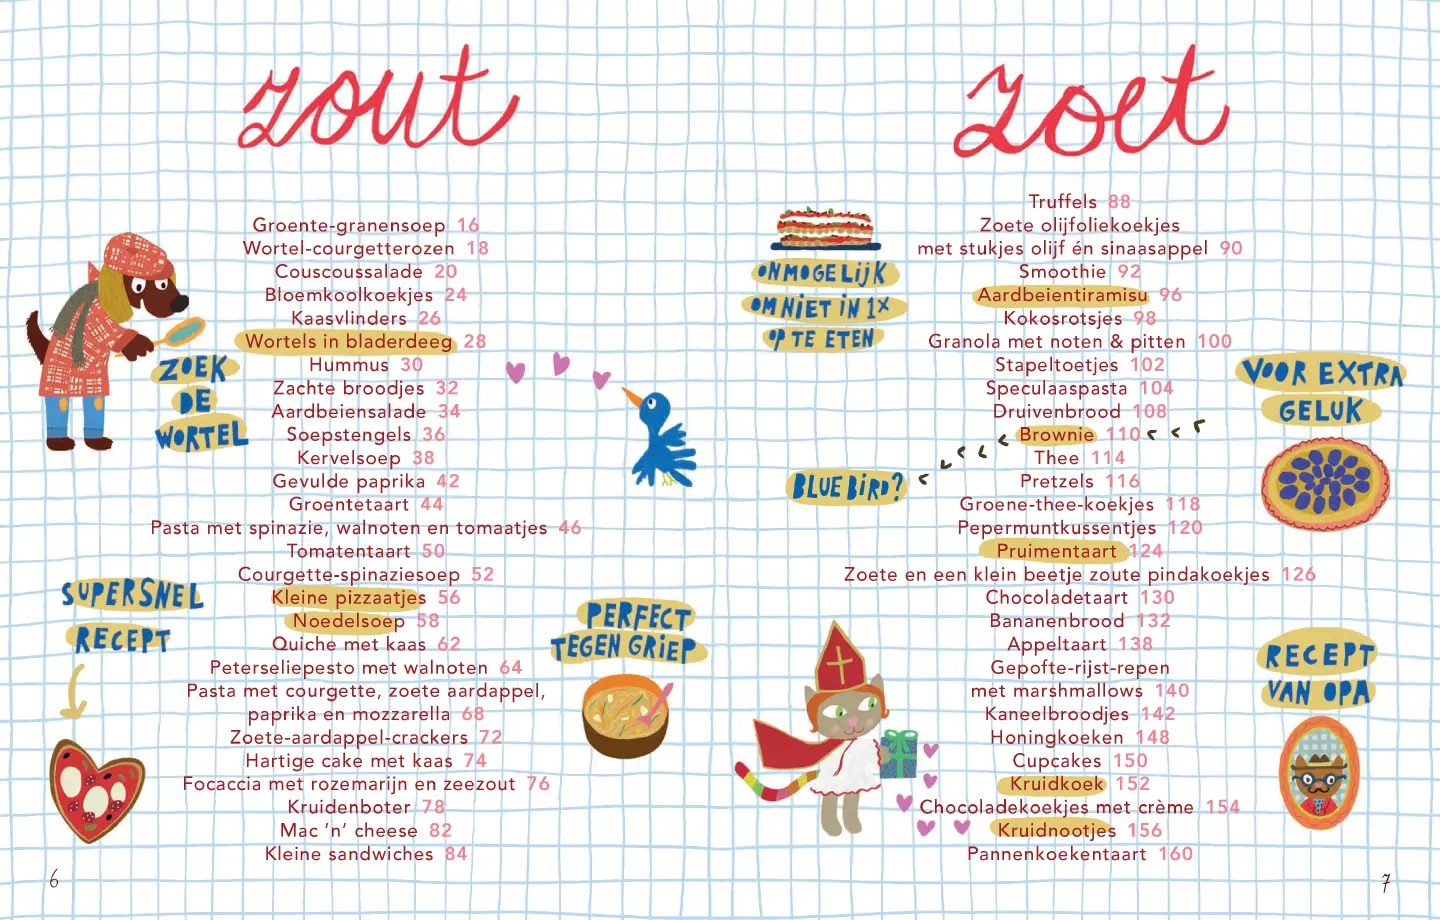 zout
Groente-granensoep 16
Wortel-courgetterozen 18
Couscoussalade 20
Bloemkoolkoekjes 24
Kaasvlinders 26
Wortels in bladerdeeg 28
Hummus 30
Zachte broodjes 32
Aardbeiensalade 34
Soepstengels 36
Kervelsoep 38
Gevulde paprika 42
Groentetaart 44
Pasta met spinazie, walnoten en tomaatjes 46
Tomatentaart 50
Courgette-spinaziesoep 52
Kleine pizzaatjes 56
Noedelsoep 58
Quiche met kaas 62
Peterseliepesto met walnoten 64
Pasta met courgette, zoete aardappel,
paprika en mozzarella 68
Zoete-aardappel-crackers 72
Hartige cake met kaas 74
Focaccia met rozemarijn en zeezout 76
Kruidenboter 78
Mac 'n' cheese 82
Kleine sandwiches 84
ZOEK
DE
WORTEL
SUPERSNEL
RECEPT
PERFECT
TEGEN GRIEP
6
zoet
Truffels 88
Zoete olijfoliekoekjes
met stukjes olijf én sinaasappel 90
Smoothie 92
Aardbeientiramisu 96
Kokosrotsjes 98
Granola met noten & pitten 100
Stapeltoetjes 102
Speculaaspasta 104
Druivenbrood 108
Brownie 110
Thee 114
Pretzels 116
Groene-thee-koekjes 118
Pepermuntkussentjes 120
Pruimentaart 124
Zoete en een klein beetje zoute pindakoekjes 126
Chocoladetaart 130
Bananenbrood 132
Appeltaart 138
Gepofte-rijst-repen
met marshmallows 140
Kaneelbroodjes 142
Honingkoeken 148
Cupcakes 150
Kruidkoek 152
Chocoladekoekjes met crème 154
Kruidnootjes 156
Pannenkoekentaart 160
ONMOGELIJK
OM NIET IN 1X
OP TE ETEN
BLUE BIRD?
VOOR EXTRA
GELUK
RECEPT
VAN OPA
7